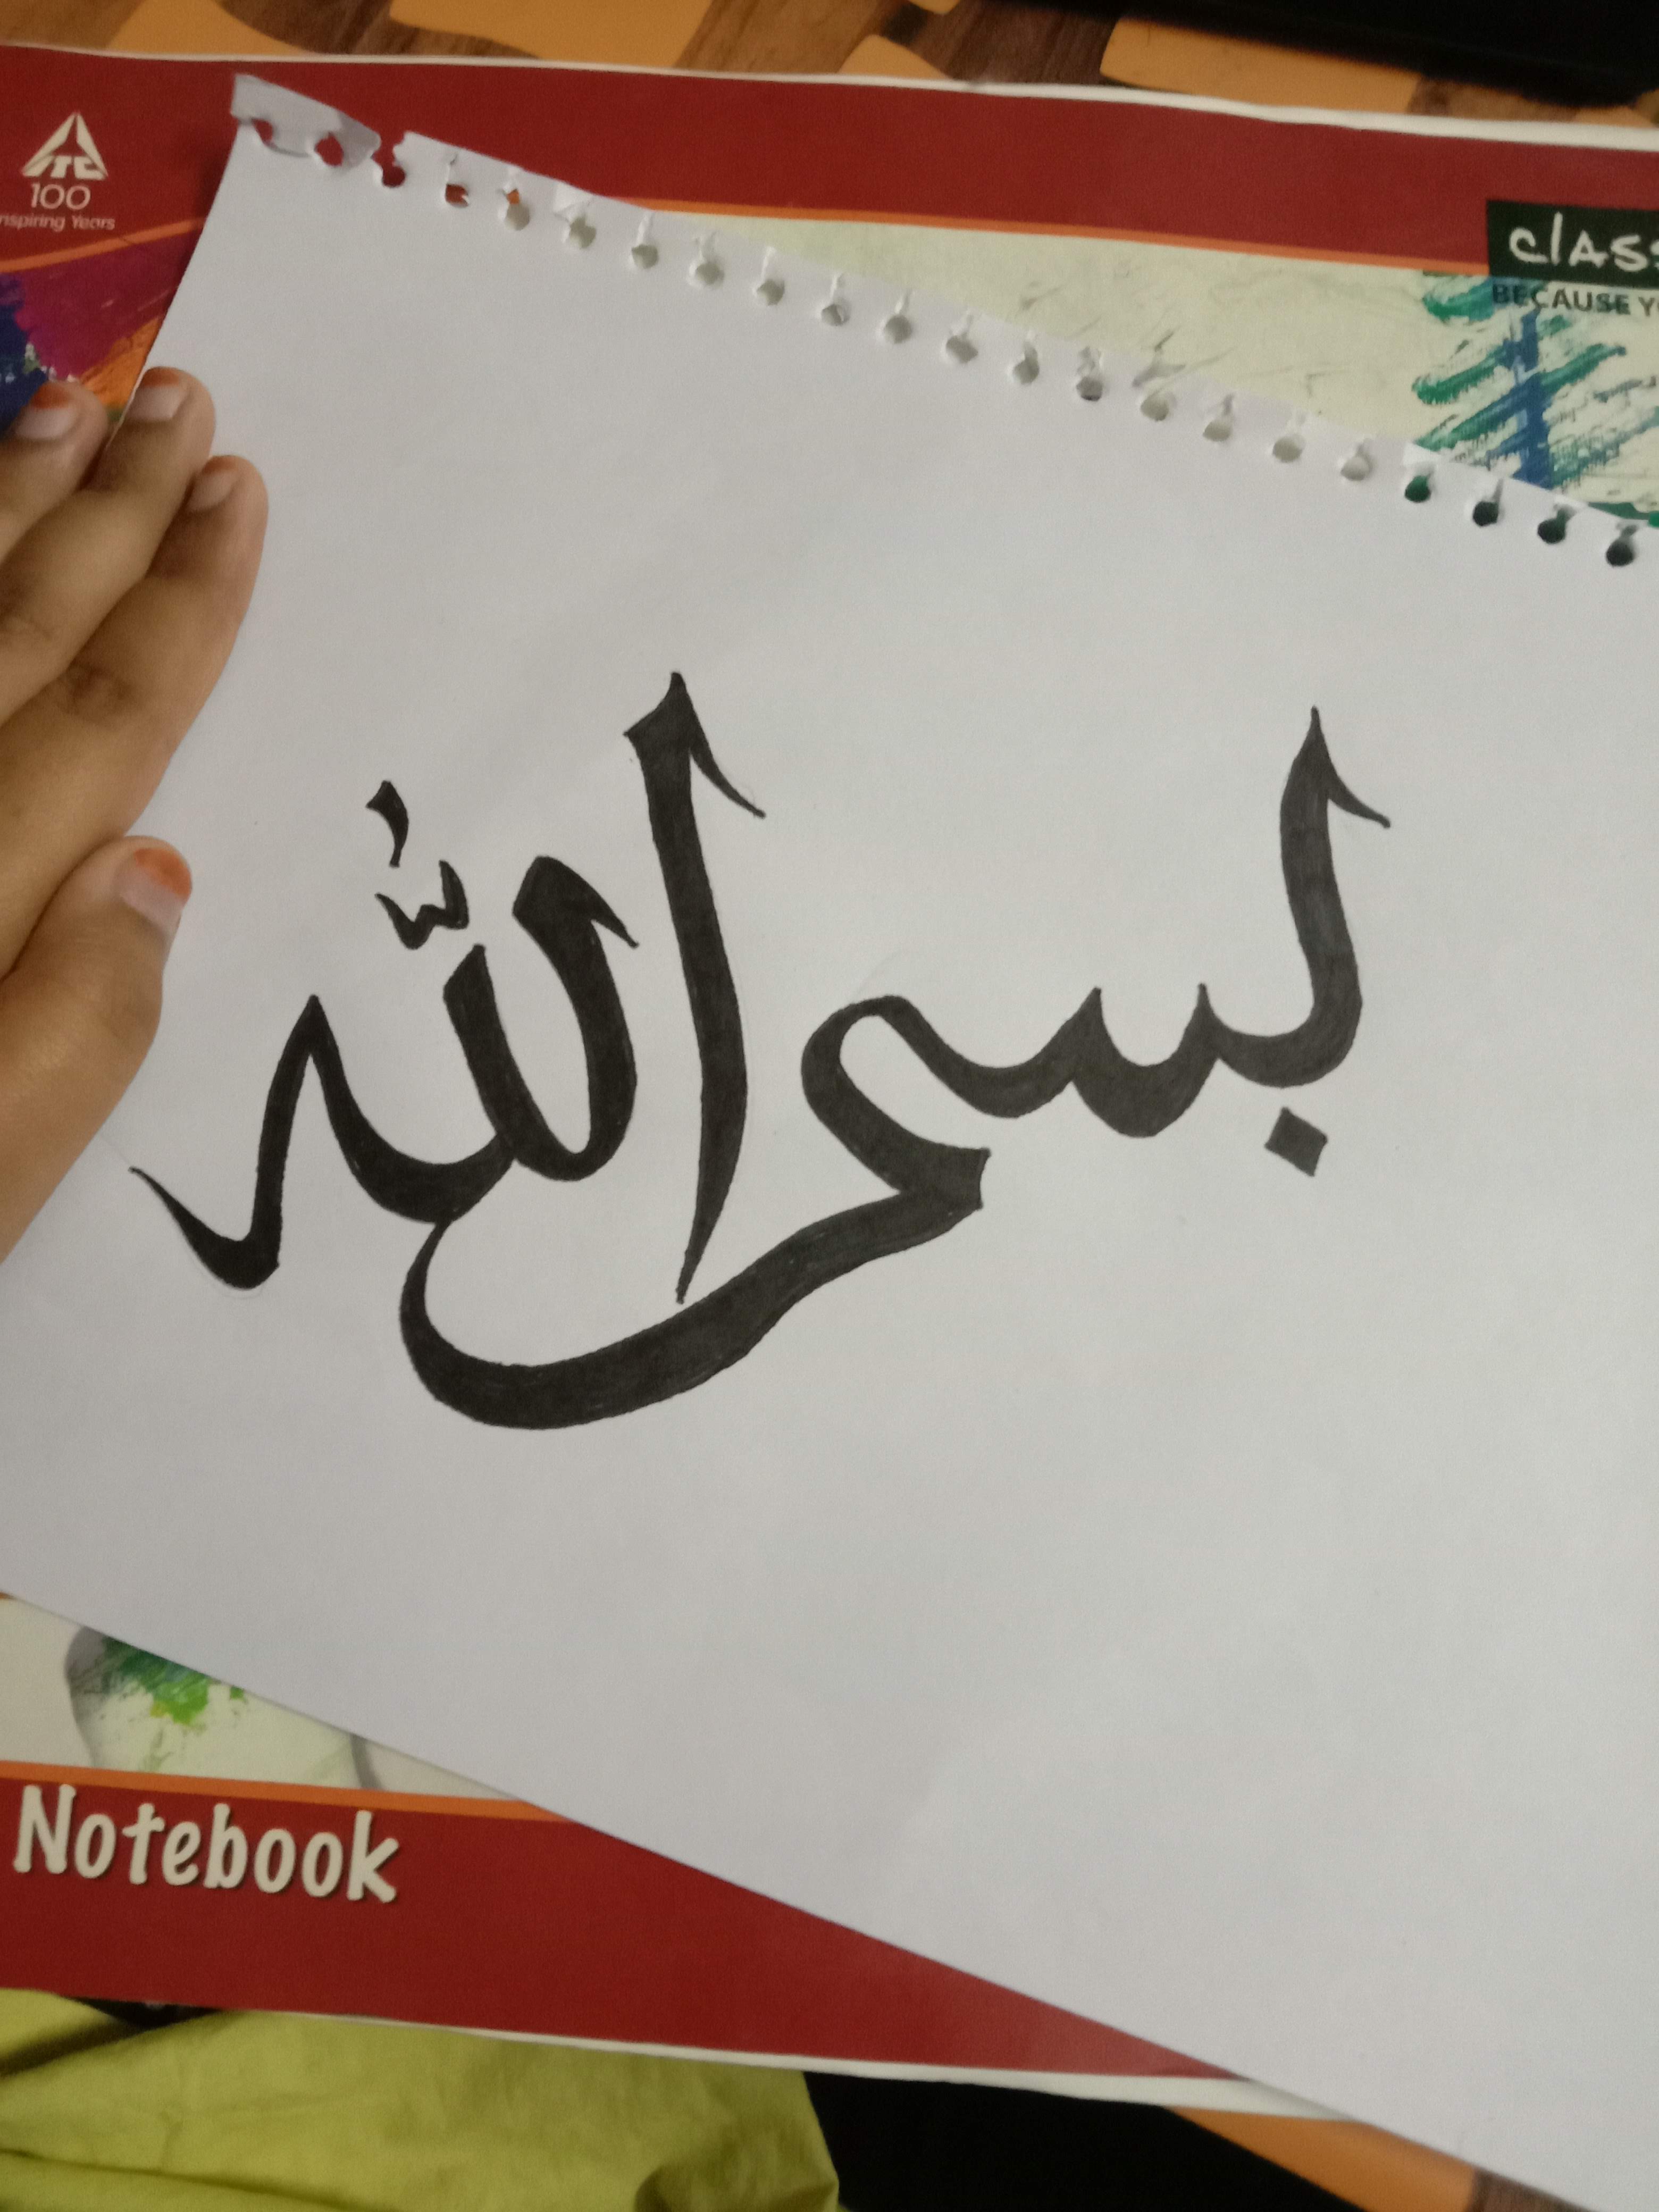 ITC
100
Inspiring Years
Class
BECAUSE
بسم اللّٰه
Notebook